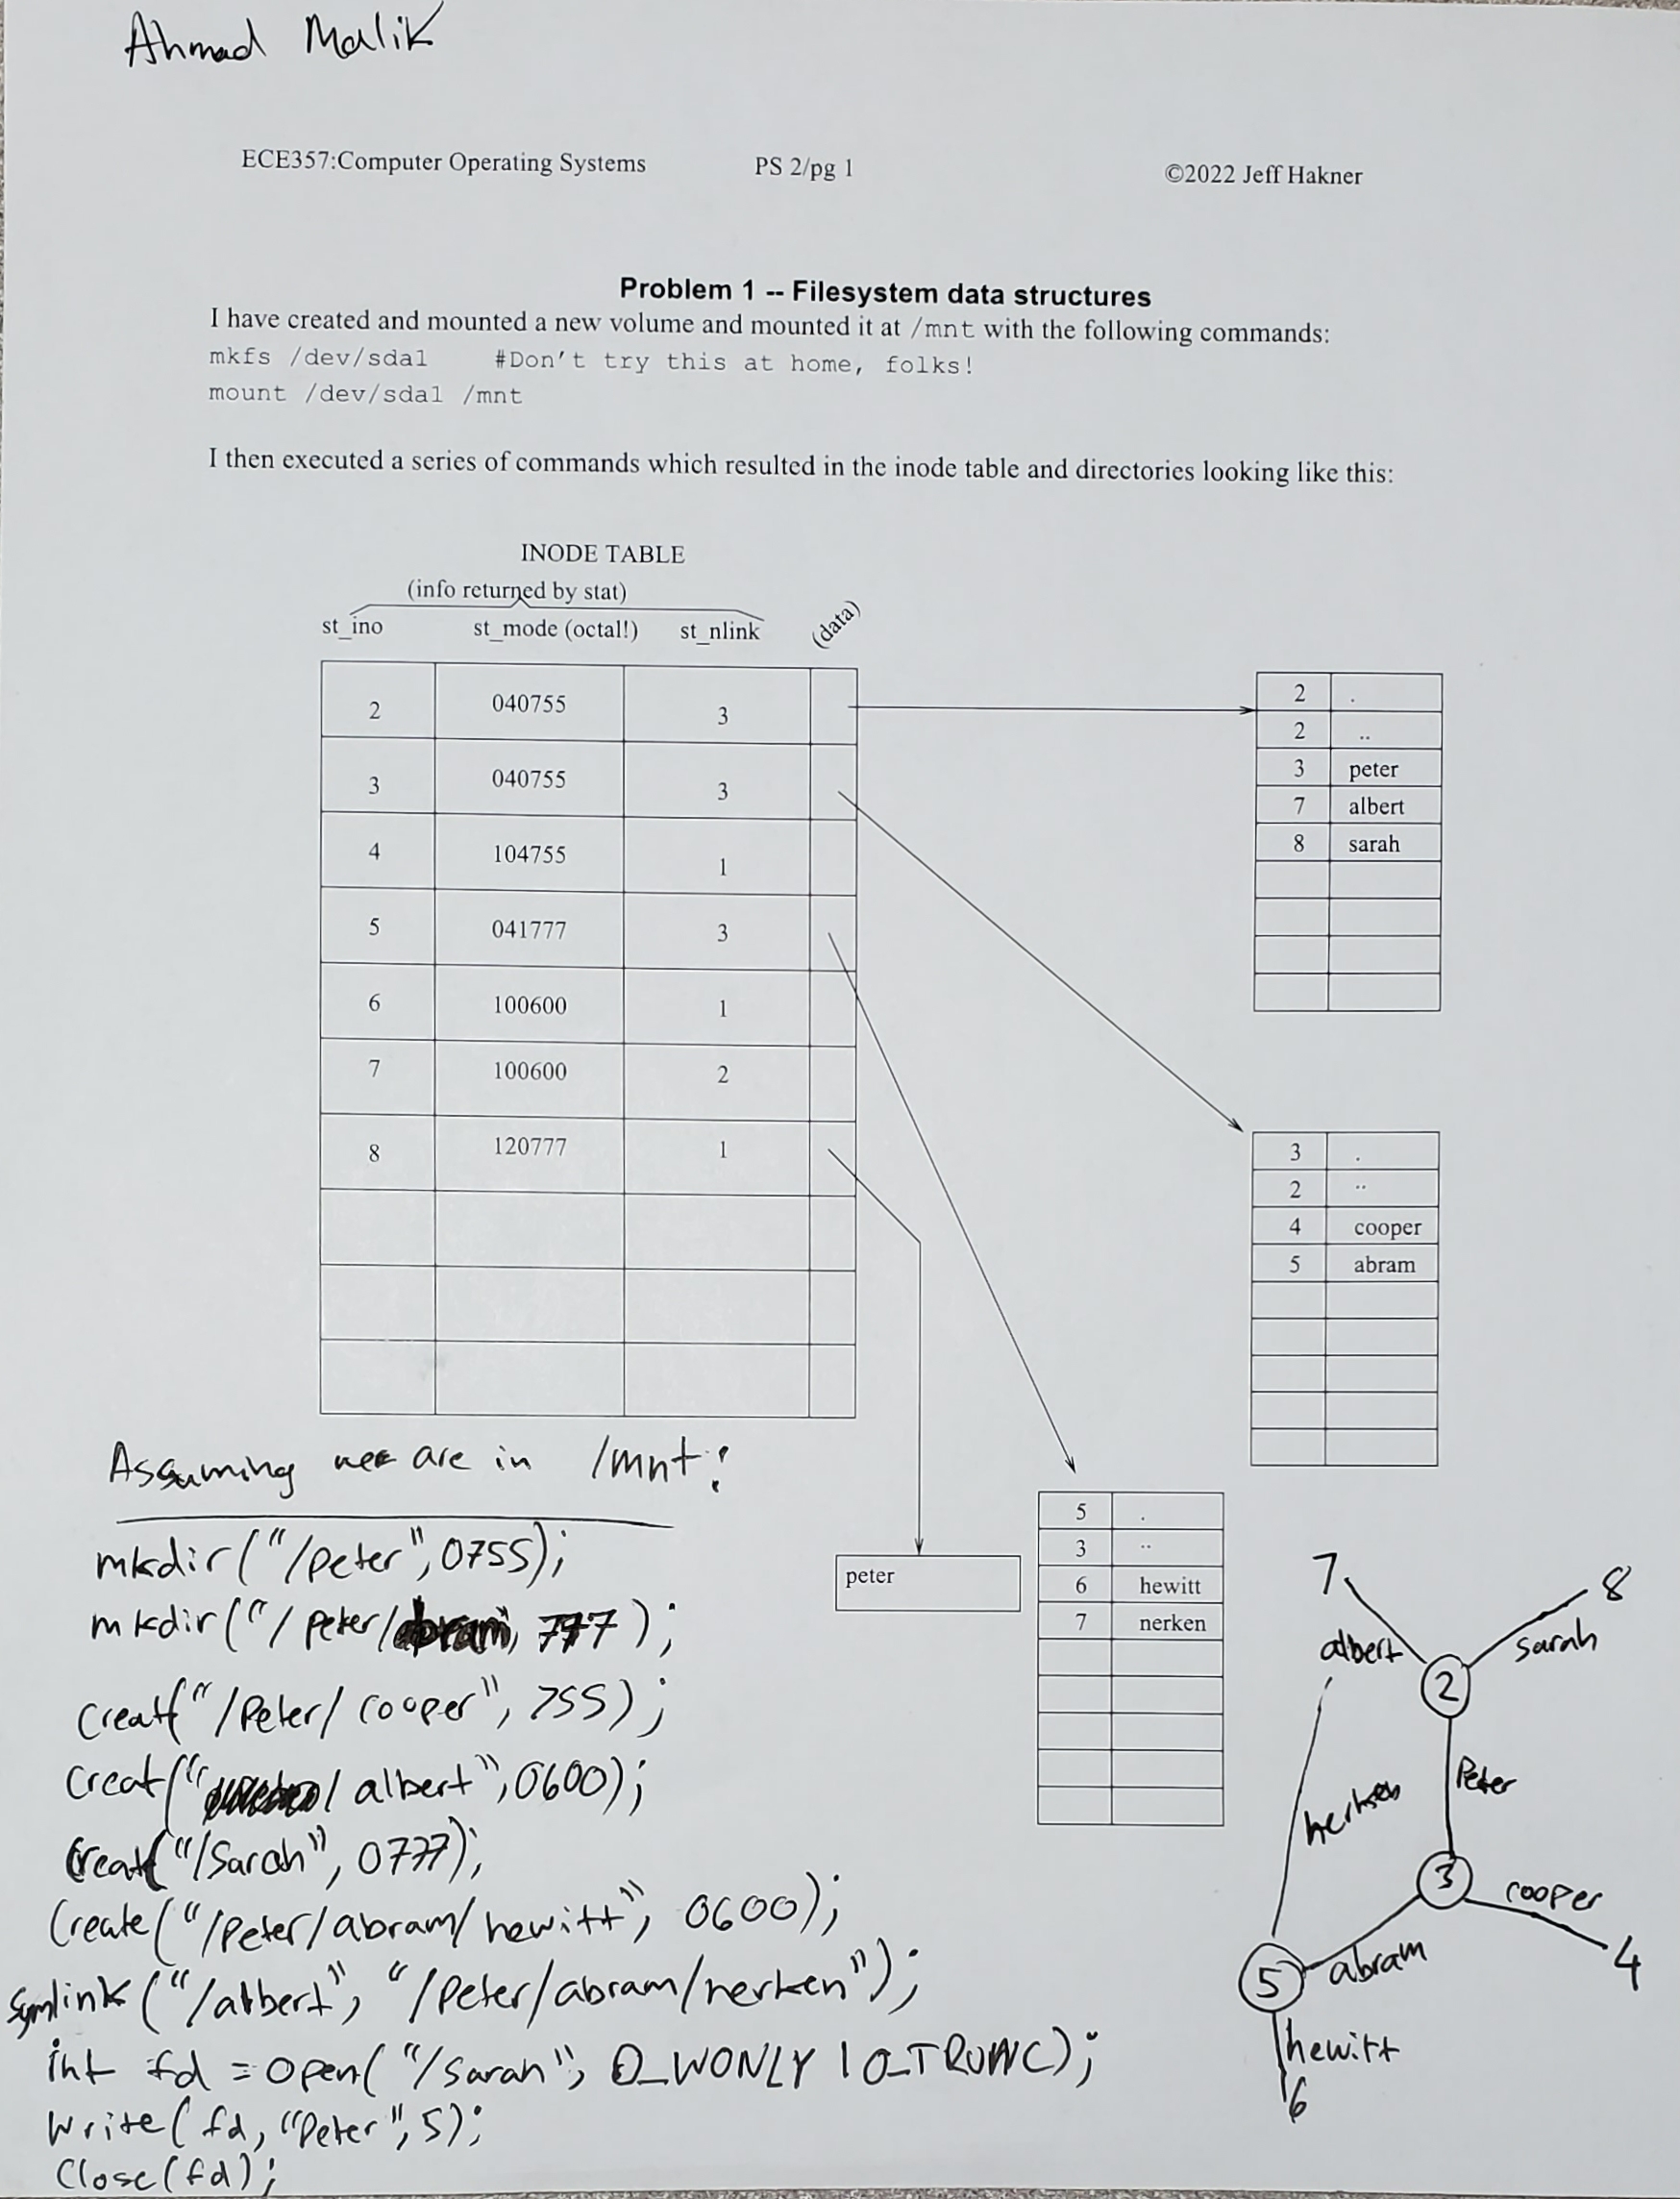 Ahmad Malik
ECE357:Computer Operating Systems PS 2/pg 1 ©2022 Jeff Hakner
Problem 1 -- Filesystem data structures
I have created and mounted a new volume and mounted it at /mnt with the following commands:
mkfs /dev/sda1 #Don't try this at home, folks!
mount /dev/sda1 /mnt
I then executed a series of commands which resulted in the inode table and directories looking like this:
INODE TABLE
(info returned by stat)
st_ino st_mode (octal!) st_nlink (data)
2 040755 3
3 040755 3
4 104755 1
5 041777 3
6 100600 1
7 100600 2
8 120777 1
2 .
2 ..
3 peter
7 albert
8 sarah
3 .
2 ..
4 cooper
5 abram
5 .
3 ..
6 hewitt
7 nerken
peter
Assuming we are in /mnt:
mkdir("/peter", 0755);
mkdir("/peter/abram", 777);
creat("/Peter/cooper", 755);
creat("/albert", 0600);
creat("/Sarah", 0777);
Create("/Peter/abram/hewitt", 0600);
Symlink("/albert", "/Peter/abram/nerken");
int fd = open("/Sarah", O_WONLY | O_TRUNC);
Write(fd, "Peter", 5);
Close(fd);
7 8
albert sarah
2
Peter
nerken
3
cooper
abram 4
5
hewitt
6